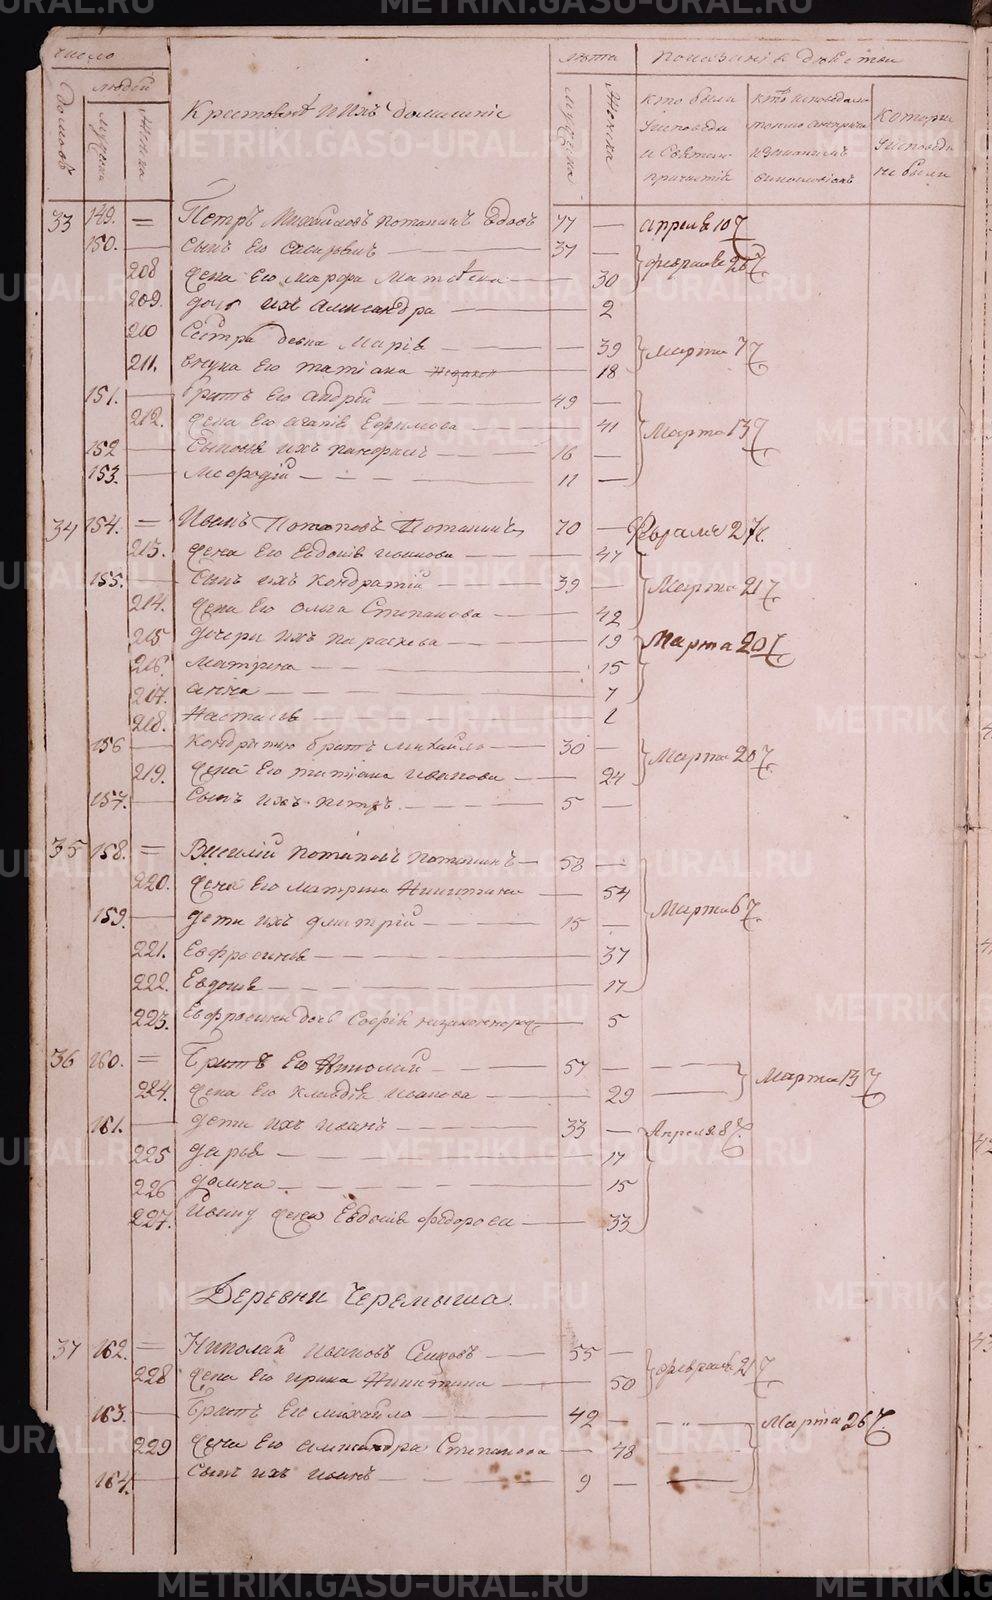 число лѣта показаніе дѣйства
людей
домовъ мужска женска Крестьянѣ и ихъ домашніе мужска женска
кто были у исповеди и святаго причастія
кто исповедался токмо
которые у исповеди не были
33 149. = Петръ Михайловъ Потанинъ вдовъ 77 — апреля 10
150. — Сынъ Его — 37 —
208 жена Его Марфа Матвѣева — 30 февраля
209. дочь ихъ Александра — 2
210 Сестра девка Марія — 39
211. внука Его татіана — 18 Марта 7
151. — братъ Его андрей — 49 —
212. жена Его агапія Ефимова — 41 Марта 13
152 — Сыновья ихъ — 16 —
153. — Мефодій — 11 —
34 154. = Иванъ Потаповъ Потанинъ 70 — Февраля 27
213. жена Его Евдокія иванова — 47
155. — Сынъ ихъ Кондратій — 39 — Марта 21
214. жена Его ольга Степанова — 42
215 дочери ихъ параскева — 19 Марта 20
216. матрена — 15
217. анна — 7
218. Настасья — 1
156 — Кондратью братъ михайло — 30 —
219. жена Его татіана иванова — 24 Марта 20
157. — Сынъ ихъ петръ — 5 —
35 158. = Василій потаповъ потанинъ — 58 —
220. жена Его матрена Никитина — 54
159. — дети ихъ дмитрій — 15 — Марта 6
221. Евфросинья — 37
222. Евдокія — 17
223. Евфросиньи дочь Софія незаконнорожд — 5
36 160. = Братъ Его Николай — 57 —
224. жена Его Клавдія иванова — 29 Марта 13
161. — дети ихъ иванъ — 33 — Апреля 8
225 дарья — 17
226 домна — 15
227. Ивана жена Евдокія федорова — 33
Деревни Черемыша.
37 162. = Николай ивановъ — 55 —
228 жена Его ирина Никитина — 50 февраля
163. — Братъ Его михайло — 42 — Марта 26
229 жена Его александра Степанова — 48
164. — Сынъ ихъ иванъ — 9 —
METRIKI.GASO-URAL.RU